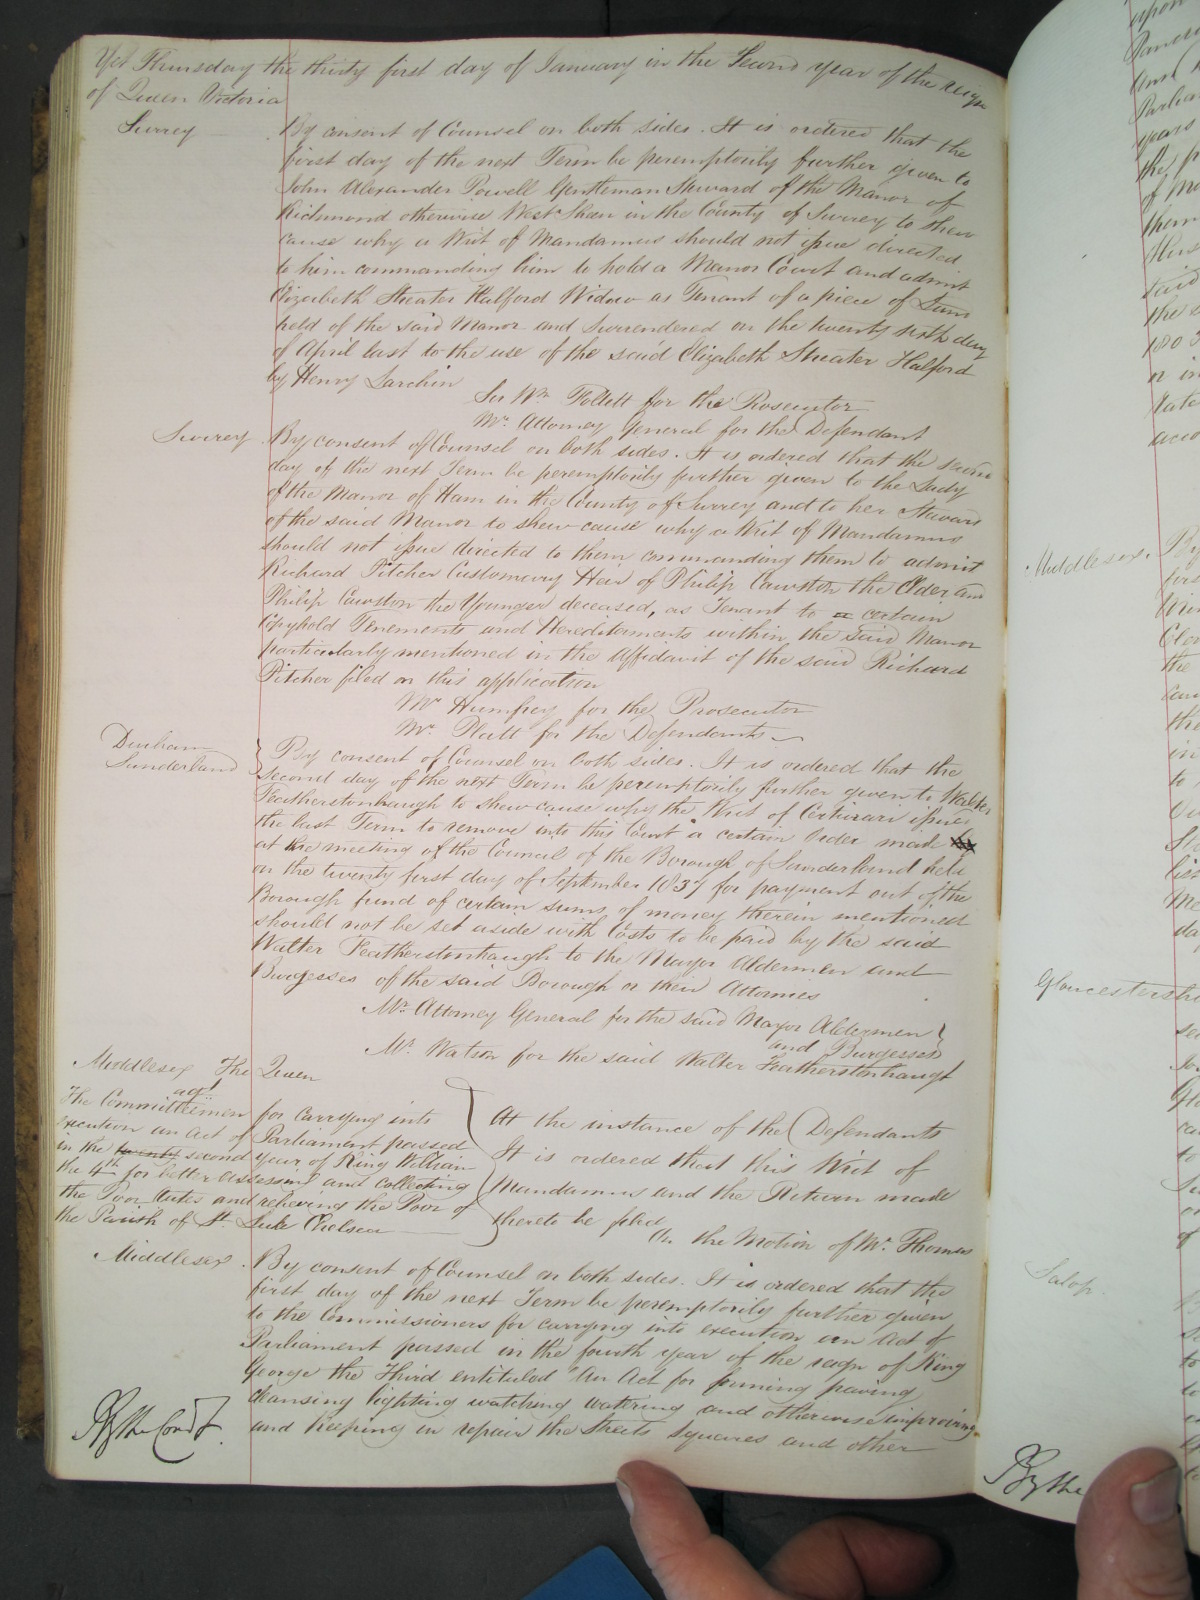 Yet Thursday the thirty first day of January in the Second year of the reign
of Queen Victoria
Surrey
By consent of Counsel on both sides. It is ordered that the
first day of the next Term be peremptorily further given to
John Alexander Powell Gentleman Steward of the Manor of
Richmond otherwise West Shen in the County of Surrey to shew
cause why a Writ of Mandamus should not issue directed
to him commanding him to hold a Manor Court and admit
Elizabeth Sheater Halford Widow as Tenant of a piece of Land
held of the said Manor and Surrendered on the twenty sixth day
of April last to the use of the said Elizabeth Sheater Halford
by Henry Larchin
Sir Wm. Follett for the Prosecutor
Mr. Attorney General for the Defendant
Surrey
By consent of Counsel on both sides. It is ordered that the second
day of the next Term be peremptorily further given to the Lady
of the Manor of Ham in the County of Surrey and to her Steward
of the said Manor to shew cause why a Writ of Mandamus
should not issue directed to them commanding them to admit
Richard Pitcher Customary Heir of Philip Cawston the Elder and
Philip Cawston the Younger deceased, as Tenant to a certain
Copyhold Tenements and Hereditaments within the said Manor
particularly mentioned in the Affidavit of the said Richard
Pitcher filed on this application
Mr. Humfrey for the Prosecutor
Mr. Platt for the Defendants
Durham
Sunderland
By consent of Counsel on both sides. It is ordered that the
second day of the next Term be peremptorily further given to Walter
Featherstonhaugh to shew cause why the Writ of Certiorari issued
the last Term to remove into this Court a certain Order made
at the meeting of the Council of the Borough of Sunderland held
on the twenty first day of September 1837 for payment out of the
Borough fund of certain sums of money therein mentioned
should not be set aside with Costs to be paid by the said
Walter Featherstonhaugh to the Mayor Aldermen and
Burgesses of the said Borough or their Attornies
Mr. Attorney General for the said Mayor Aldermen
and Burgesses
Mr. Watson for the said Walter Featherstonhaugh
Middlesex The Queen
agt.
The Committeemen for carrying into
execution an Act of Parliament passed
in the twenty second year of King William
the 4th for better assessing and collecting
the Poor Rates and relieving the Poor of
the Parish of St. Luke Chelsea
At the instance of the Defendants
It is ordered that this Writ of
Mandamus and the Return made
thereto be filed
On the Motion of Mr. Thomas
Middlesex
By consent of Counsel on both sides. It is ordered that the
first day of the next Term be peremptorily further given
to the Commissioners for carrying into execution an Act of
Parliament passed in the fourth year of the reign of King
George the Third entituled "An Act for forming paving
cleansing lighting watching watering and otherwise improving
and keeping in repair the Streets Squares and other
By the Court
Middlesex.
Gloucestershire
Salop.
By the